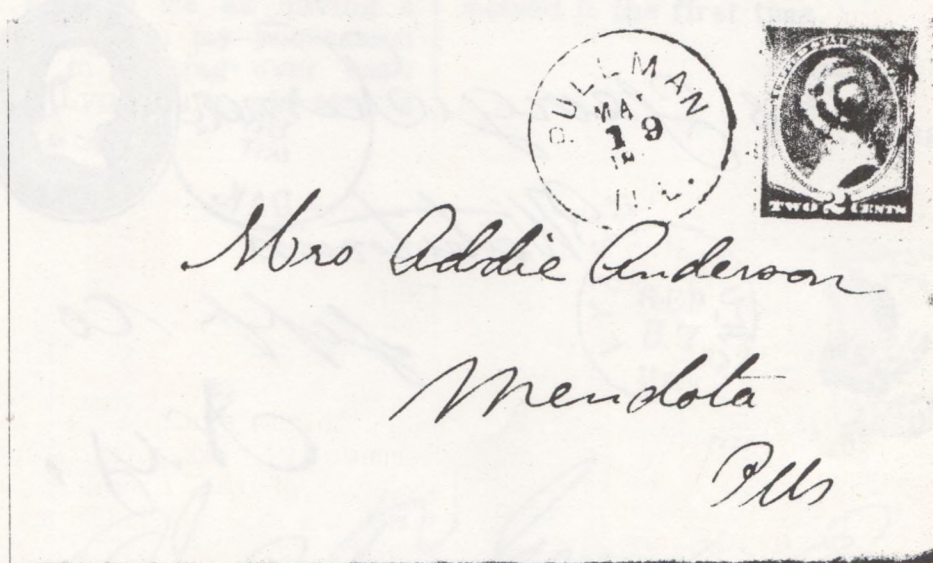 PULLMAN
MA
19
ILL.
TWO 2 CENTS
Mrs Addie Anderson
Mendota
Ills